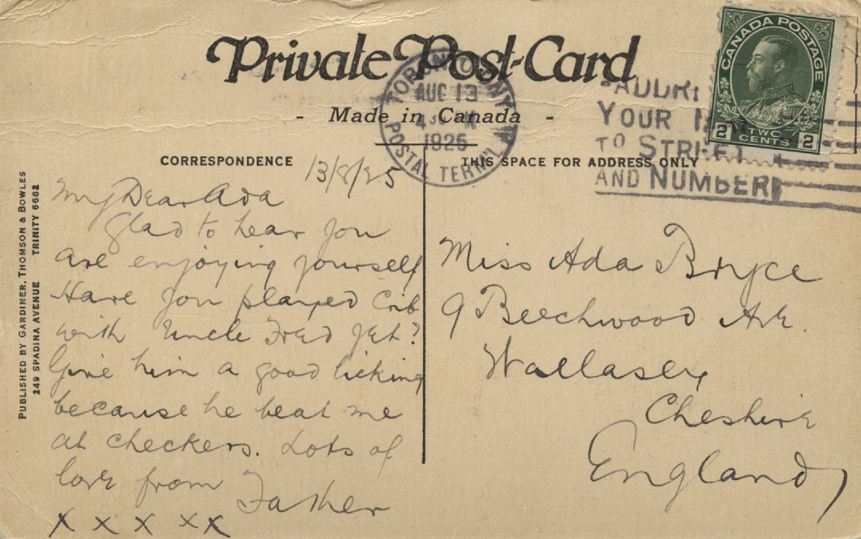 Private Post-Card
- Made in Canada -
TORONTO, ONT
AUG 13
1925
POSTAL TERM'L A
YOUR
TO STREET
AND NUMBER
CANADA POSTAGE
2 TWO CENTS 2
CORRESPONDENCE
THIS SPACE FOR ADDRESS ONLY
PUBLISHED BY GARDINER, THOMSON & BOWLES
249 SPADINA AVENUE TRINITY 6682
13/8/25
My Dear Ada
Glad to hear you
are enjoying yourself
Have you played Crib
with Uncle Fred yet?
Give him a good licking
because he beat me
at checkers. Lots of
love from Father
x x x x x
Miss Ada Bryce
9 Beechwood Ave.
Wallasey
Cheshire
England